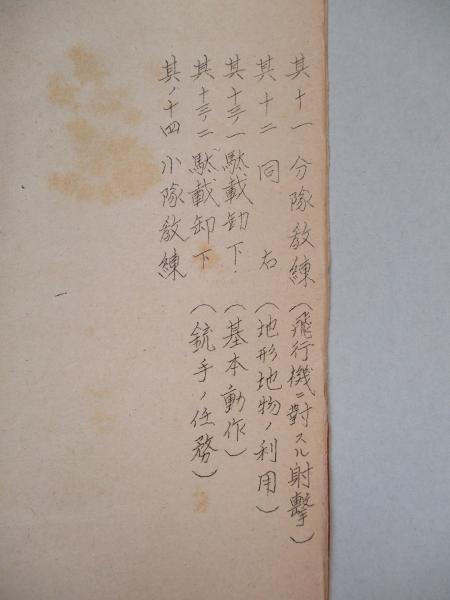 其十一 分隊教練(飛行機ニ對スル射擊)
其十二 同右(地形地物ノ利用)
其十三ノ一 駄載卸下(基本動作)
其十三ノ二 駄載卸下(銃手ノ任務)
其ノ十四 小隊教練